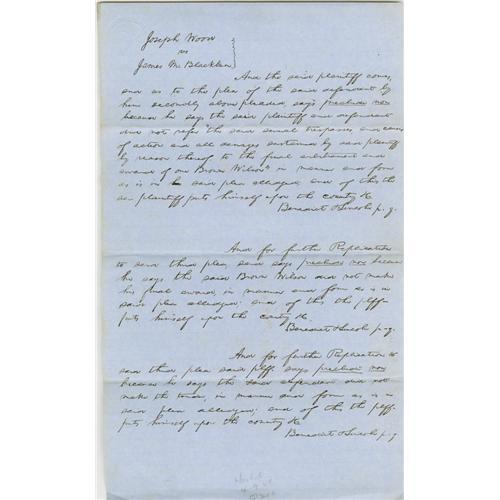 Joseph Wood
vs
James McBlackben
And the said plaintiff comes,
and as to the plea of the said defendant by
him secondly above pleaded, says precludi non
because he says the said plaintiff and defendant
did not refer "the said several trespasses and causes
of action and all damages sustained by said plaintiff
by reason thereof to the final arbitrament and
award of one Brown Wilson" in manner and form
as is in said plea alleged, and of this the
plaintiff puts himself upon the country &c
Benedict & Lincoln p. q.
And for further Replication
to said third plea, said says precludi non because
he says the said Brown Wilson did not make
his final award, in manner and form as is in
said plea alleged; and of this the plff.
puts himself upon the country &c.
Benedict & Lincoln p. q.
And for further Replication to
said third plea said plff. says precludi non
because he says the said defendant did not
make the tender, in manner and form as is in
said plea alleged; and of this the plff.
puts himself upon the country &c
Benedict & Lincoln p. q.